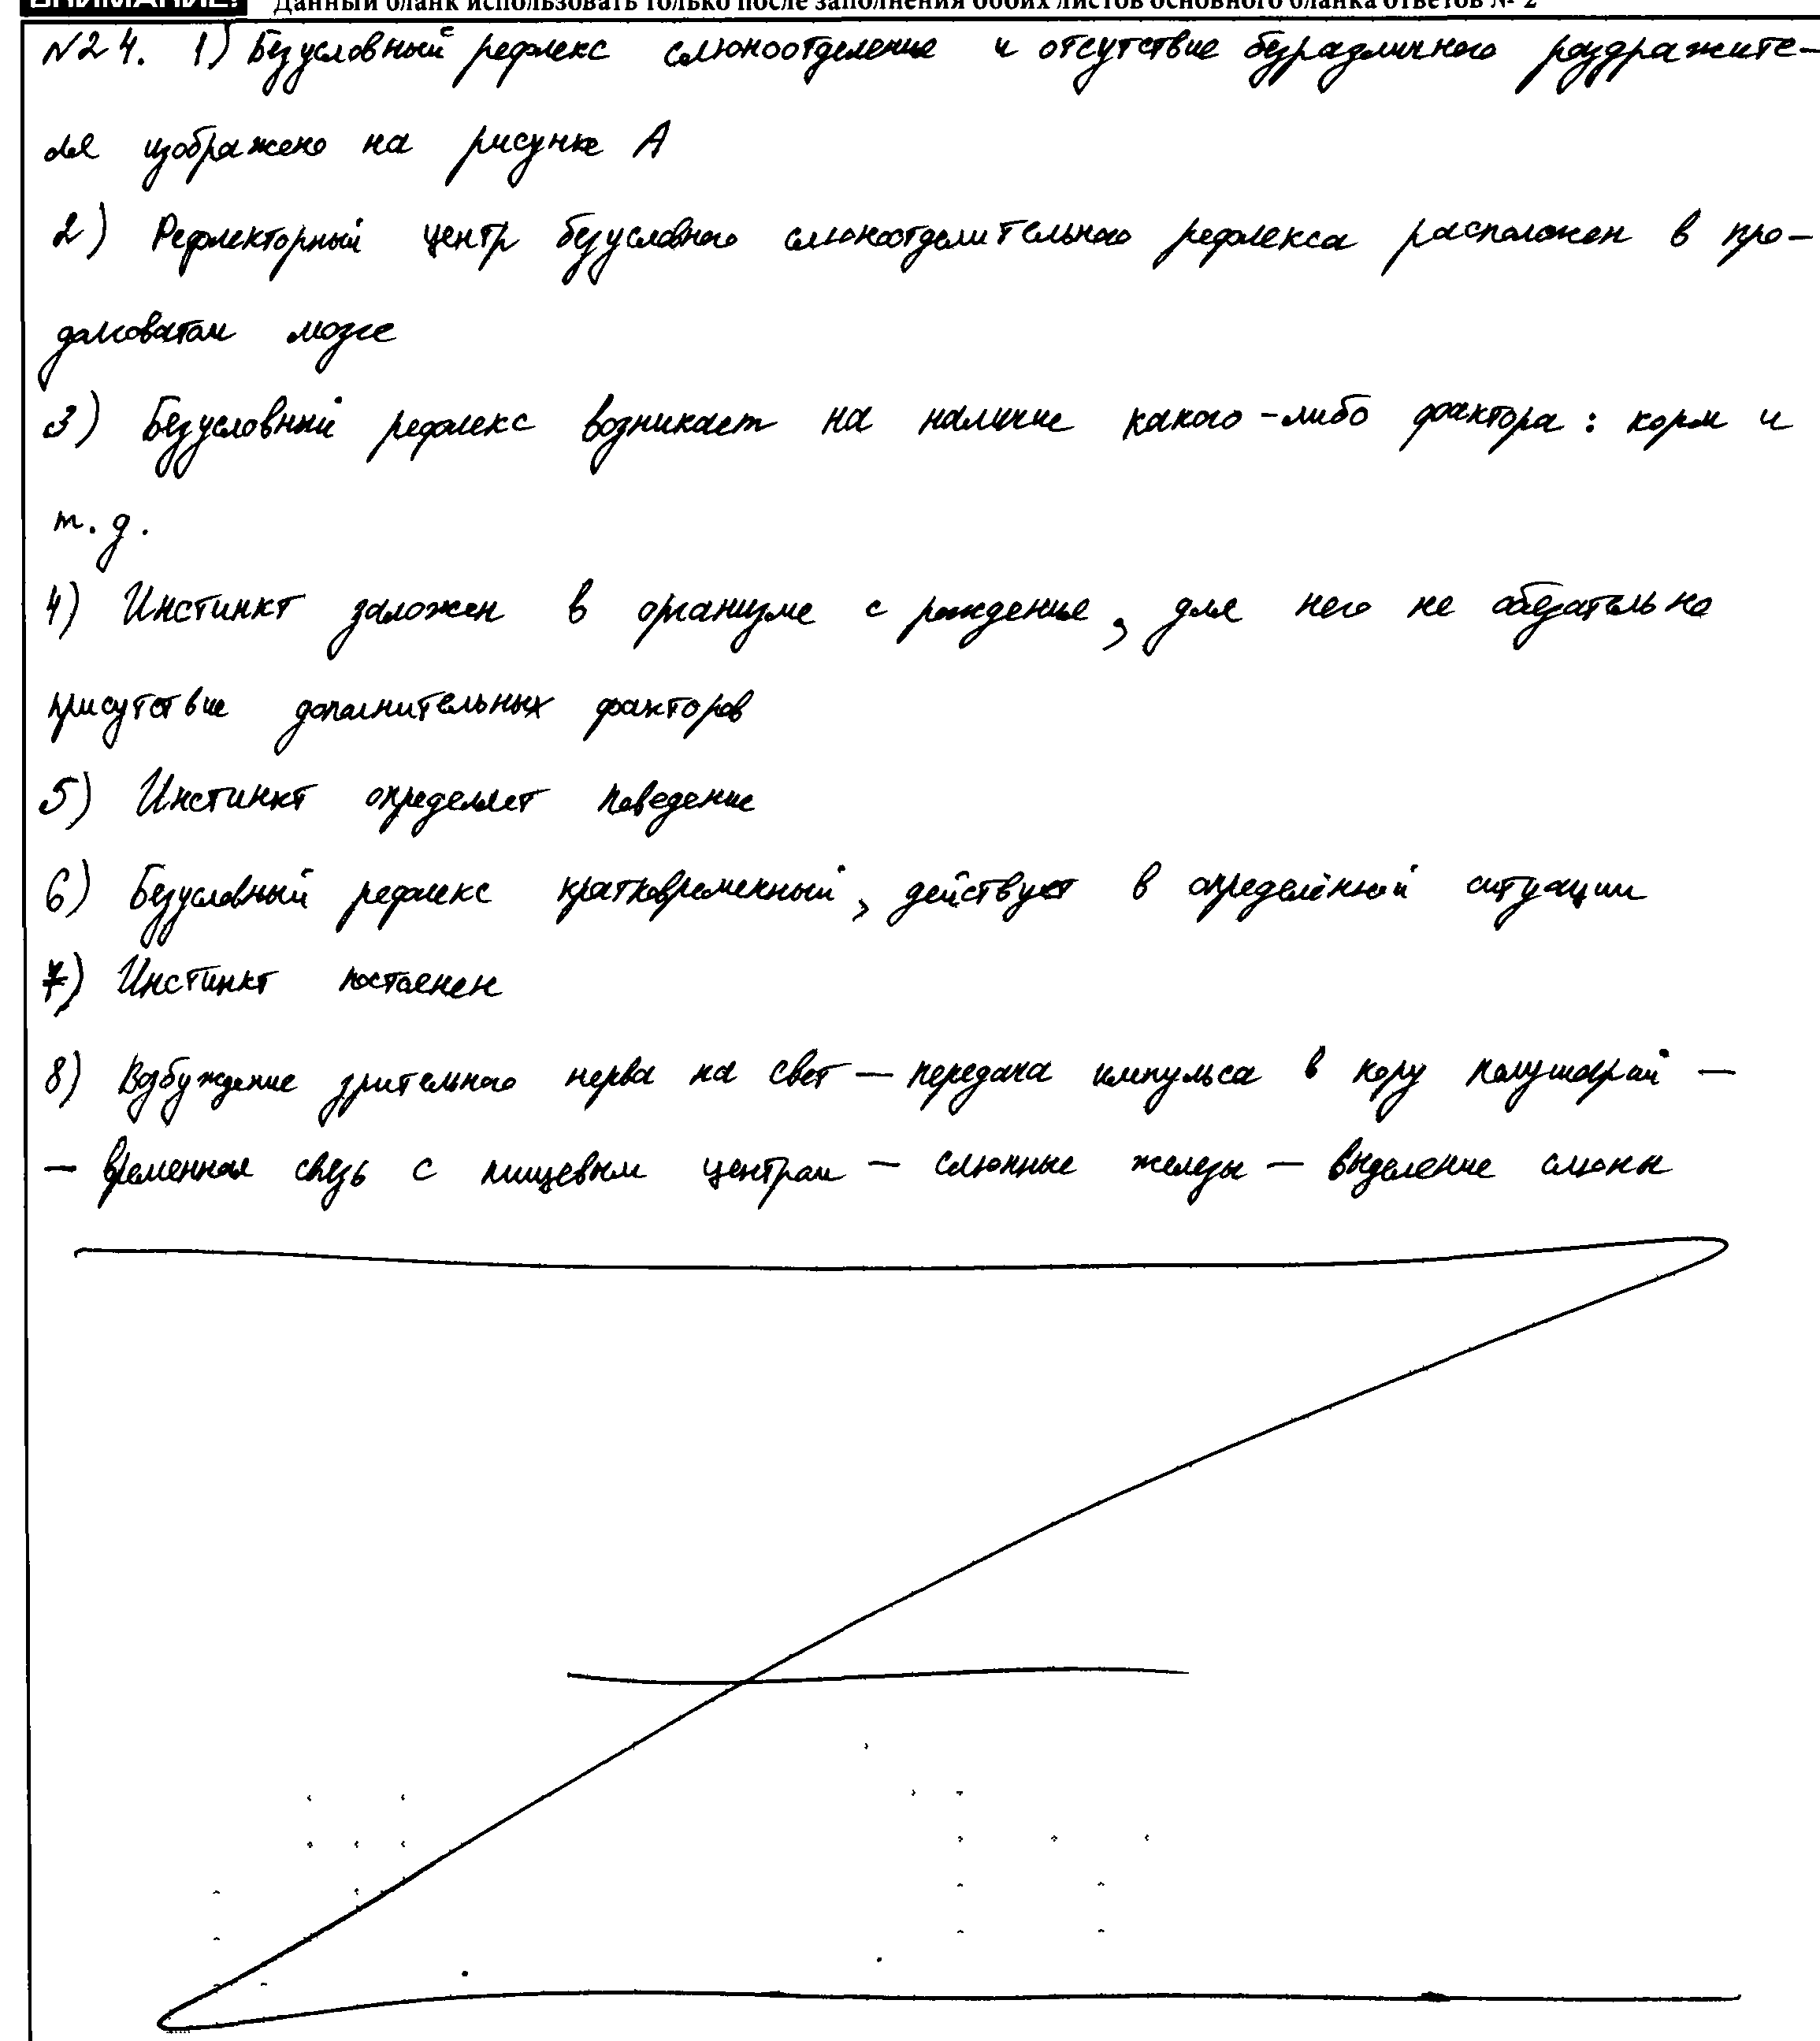 ВНИМАНИЕ! Данный бланк использовать только после заполнения обоих листов основного бланка ответов № 2
№24. 1) Безусловный рефлекс слюноотделение и отсутствие безразличного раздражите-
ля изображено на рисунке А
2) Рефлекторный центр безусловного слюноотделительного рефлекса расположен в про-
долговатом мозге
3) Безусловный рефлекс возникает на наличие какого-либо фактора: корм и
т. д.
4) Инстинкт заложен в организме с рождение, для него не обязательно
присутствие дополнительных факторов
5) Инстинкт определяет поведение
6) Безусловный рефлекс кратковременный, действует в определённой ситуации
7) Инстинкт постоянен
8) Возбуждение зрительного нерва на свет — передача импульса в кору полушарий —
— временная связь с пищевым центром — слюнные железы — выделение слюны